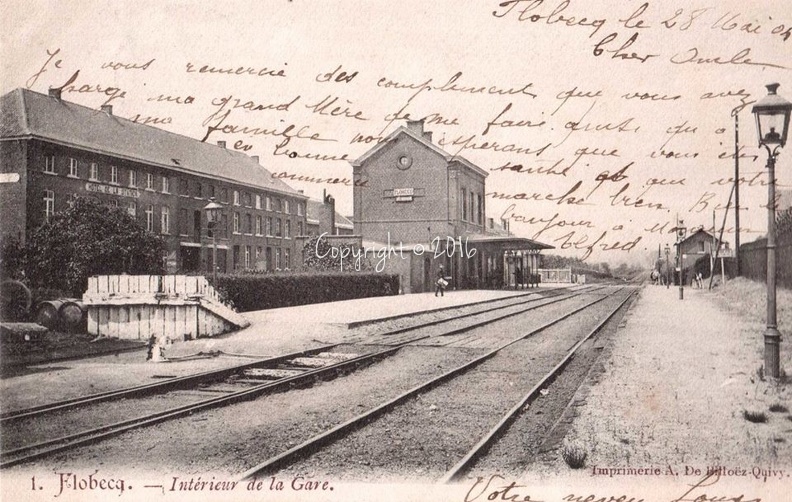 Flobecq le 28 Mai 04
Cher Oncle
Je vous remercie des compliment que vous avez
chargé ma grand Mère de me faire ainsi qu'à
ma famille nous espérons que vous
en bonne santé et que votre
commerce marche bien.
bonjour à
Alfred
HOTEL DE LA STATION
FLOBECQ
Copyright © 2016
1. Flobecq. — Intérieur de la Gare.
Imprimerie A. De Billoëz-Quivy.
Votre neveu Louis